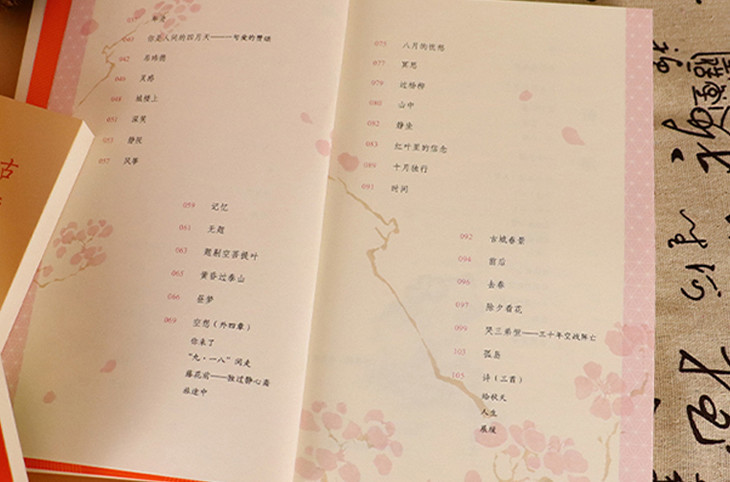 040 你是人间的四月天——一句爱的赞颂
042 吊玮德
046 灵感
048 城楼上
051 深笑
053 静院
057 风筝
059 记忆
061 无题
063 题剔空菩提叶
065 黄昏过泰山
066 昼梦
069 空想（外四章）
你来了
“九·一八”闲走
藤花前——独过静心斋
旅途中
075 八月的忧愁
077 冥思
079 过杨柳
080 山中
082 静坐
083 红叶里的信念
089 十月独行
091 时间
092 古城春景
094 前后
096 去春
097 除夕看花
099 哭三弟恒——三十年空战阵亡
103 孤岛
105 诗（三首）
给秋天
人生
展缓
古